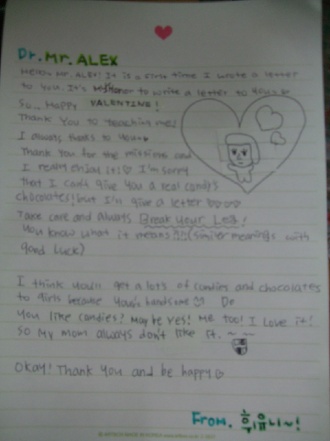 Dr. Mr. ALEX
Hello Mr. ALEX! It is a first time I wrote a letter
to you. It's honor to write a letter to you
So... Happy VALENTINE!
Thank you to teaching me!
I always thanks to you
Thank you for the missions and
I really enjoy it! I'm sorry
that I can't give you a real candys
chocolates! but I'm give a letter
Take care and always Break your Leg!
You know what it means (similer meaning with
good luck)
I think you'll get a lots of candies and chocolates
to girls because you's handsome Do
you like candies? Maybe yes! Me too! I love it!
So my mom always don't like it. ~ ~
Okay! Thank you and be happy
From.